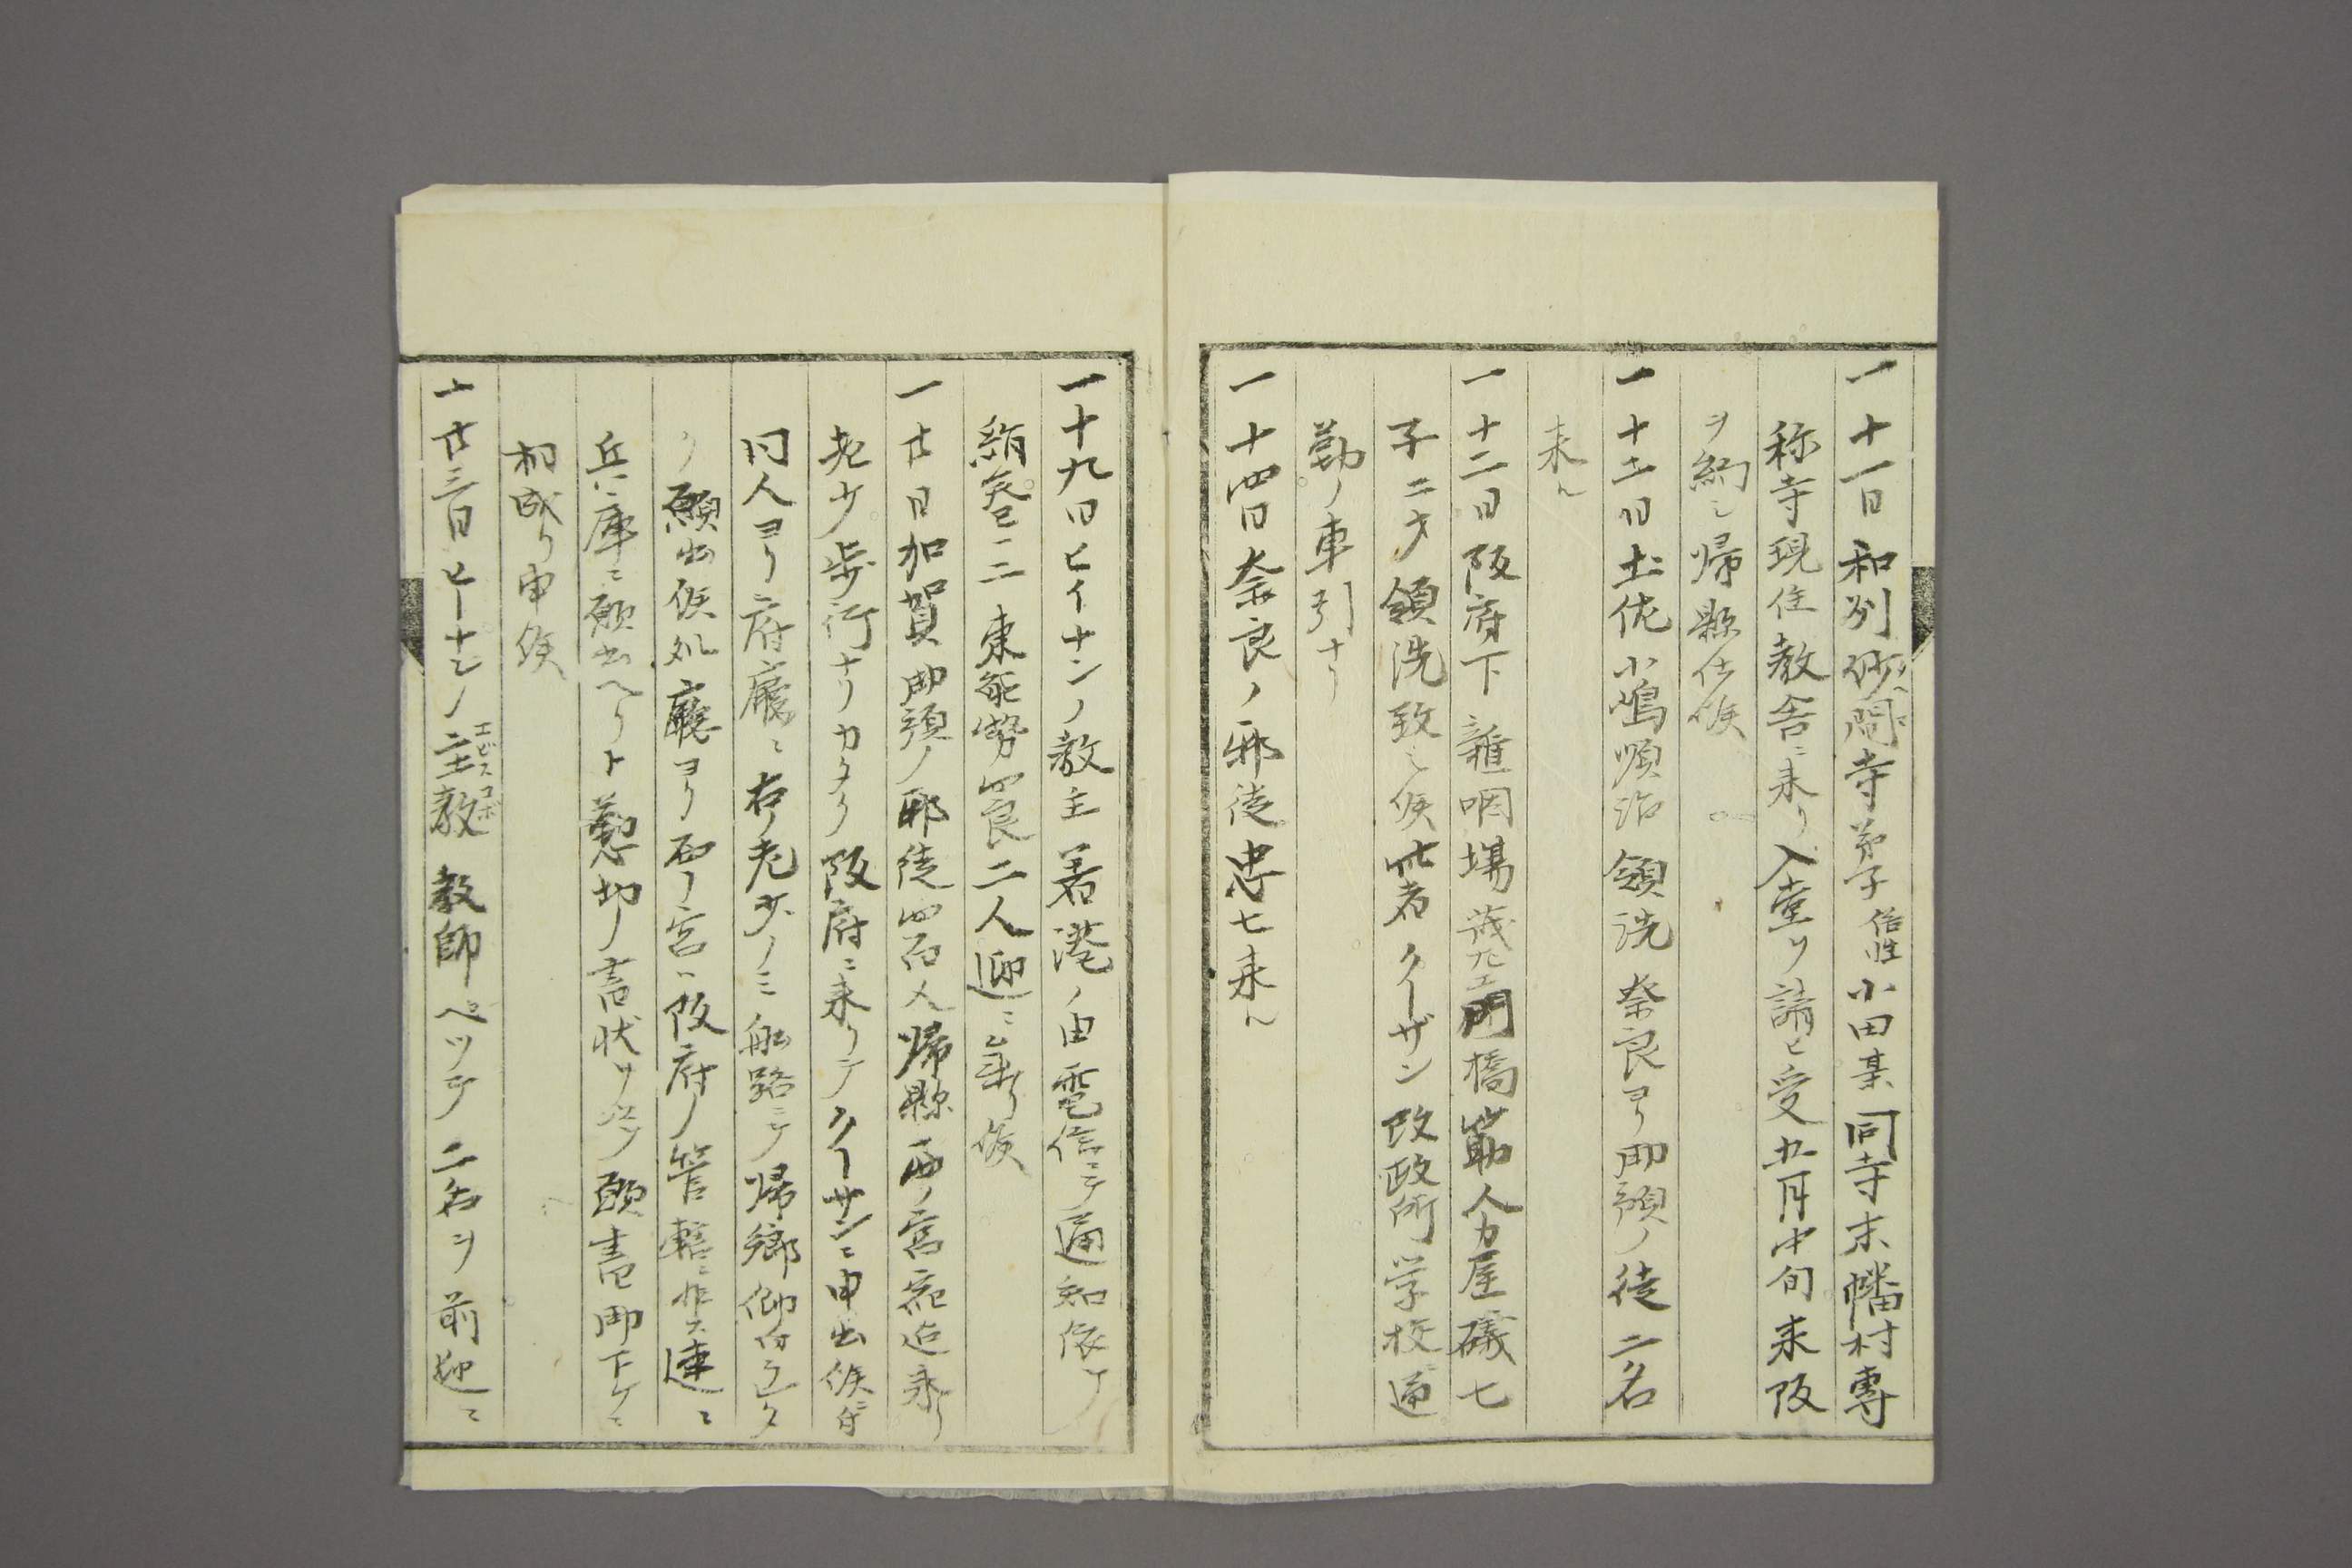 一十一日和州砂間寺弟子俗姓小田某同寺末幡村専
称寺現住教舎ニ来リ入堂ヲ請ヒ受五月中旬来阪
ヲ約シ帰縣仕候
一十二日土佐小嶋順治領洗奈良ヨリ御預ノ徒二名
来ル
一十二日阪府下 橋筋人力屋礒七
子二才領洗致シ候此者クーザン改政所学校通
勤ノ車引ナリ
一十四日奈良ノ邪徒忠七来ル
一十九日ヒイナンノ教主着港ノ由電信ニテ通知依テ
絹巻ニ二東能勢四良二人迎ニ参リ候
一廿日加賀御預ノ邪徒四百人帰縣西ノ宮宛迄来リ
老少歩行ナリカタク阪府ニ来リテクーサンニ申出候ニ付
同人ヨリ府廳ニ右老少ノミ舩路ニテ帰郷仰付ラレタク
ノ願出候処廳ヨリ西ノ宮ハ阪府ノ管轄ニ非ス速ニ
兵庫ニ願出ヘシト懇切ノ書状ヲ送テ願書御下ケニ
相成リ申候
一廿三日ヒーナンノ主教エピスコポ教師ペツテ二名ヲ前迎ニ